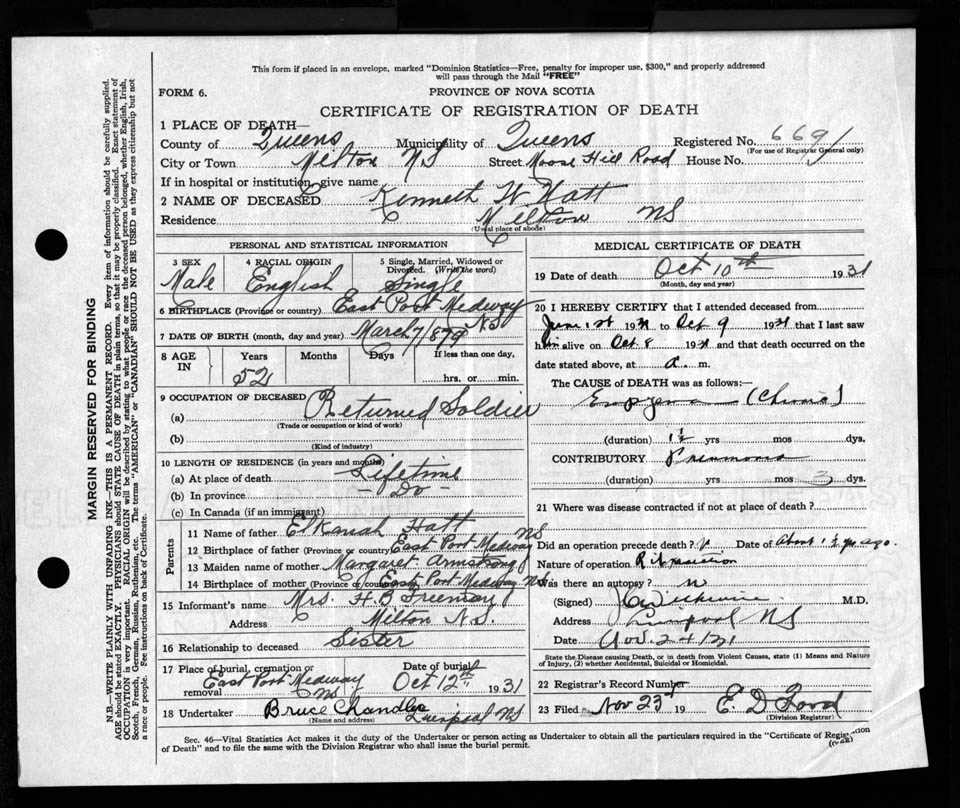 This form if placed in an envelope, marked "Dominion Statistics—Free, penalty for improper use, $300," and properly addressed
will pass through the Mail "FREE"
FORM 6.
PROVINCE OF NOVA SCOTIA
CERTIFICATE OF REGISTRATION OF DEATH
1 PLACE OF DEATH—
County of Queens Municipality of Queens Registered No. 669
(For use of Registrar General only)
City or Town Milton NS Street Moose Hill Road House No.
If in hospital or institution, give name
2 NAME OF DECEASED Kenneth W Hatt
Residence Milton NS
(Usual place of abode)
PERSONAL AND STATISTICAL INFORMATION
3 SEX 4 RACIAL ORIGIN 5 Single, Married, Widowed or Divorced. (Write the word)
Male English Single
6 BIRTHPLACE (Province or country) East Port Medway NS
7 DATE OF BIRTH (month, day and year) March 7/1879
8 AGE IN Years Months Days If less than one day,
52 hrs. or min.
9 OCCUPATION OF DECEASED
(a) Returned Soldier
(Trade or occupation or kind of work)
(b)
(Kind of industry)
10 LENGTH OF RESIDENCE (in years and months)
(a) At place of death Lifetime
(b) In province — Do —
(c) In Canada (if an immigrant)
Parents
11 Name of father Elkanah Hatt
12 Birthplace of father (Province or country) East Port Medway NS
13 Maiden name of mother Margaret Armstrong
14 Birthplace of mother (Province or country) East Port Medway NS
15 Informant's name Mrs. H. B Freeman
Address Milton N.S.
16 Relationship to deceased Sister
17 Place of burial, cremation or removal Date of burial
East Port Medway NS Oct 12th 1931
18 Undertaker Bruce Chandler Liverpool NS
(Name and address)
MEDICAL CERTIFICATE OF DEATH
19 Date of death Oct 10th 1931
(Month, day and year)
20 I HEREBY CERTIFY that I attended deceased from
June 1st 1931 to Oct 9 1931 that I last saw
him alive on Oct 8 1931 and that death occurred on the
date stated above, at a. m.
The CAUSE OF DEATH was as follows:—
Empyema (Chronic)
(duration) 1½ yrs mos dys.
CONTRIBUTORY Pneumonia
(duration) yrs. mos. 3 dys.
21 Where was disease contracted if not at place of death?
Did an operation precede death? Date of About 1½ yrs ago.
Nature of operation Rib resection
Was there an autopsy? n
(Signed) M.D.
Address Liverpool NS
Date Nov. 24/31
State the Disease causing Death, or in death from Violent Causes, state (1) Means and Nature
of Injury, (2) whether Accidental, Suicidal or Homicidal.
22 Registrar's Record Number
23 Filed Nov 23 19 E. D Ford
(Division Registrar)
Sec. 46—Vital Statistics Act makes it the duty of the Undertaker or person acting as Undertaker to obtain all the particulars required in the "Certificate of Registration
of Death" and to file the same with the Division Registrar who shall issue the burial permit.
MARGIN RESERVED FOR BINDING
N.B.—WRITE PLAINLY WITH UNFADING INK—THIS IS A PERMANENT RECORD. Every item of information should be carefully supplied.
AGE should be stated EXACTLY. PHYSICIANS should STATE CAUSE OF DEATH in plain terms, so that it may be properly classified. Exact statement of
OCCUPATION is very important. RACIAL ORIGIN will be described by stating to what people or race the deceased person belonged, whether English, Irish,
Scotch, French, German, Russian, Ruthenian, etc. The terms "AMERICAN" or "CANADIAN" SHOULD NOT BE USED as they express citizenship but not
a race or people. See instructions on back of Certificate.